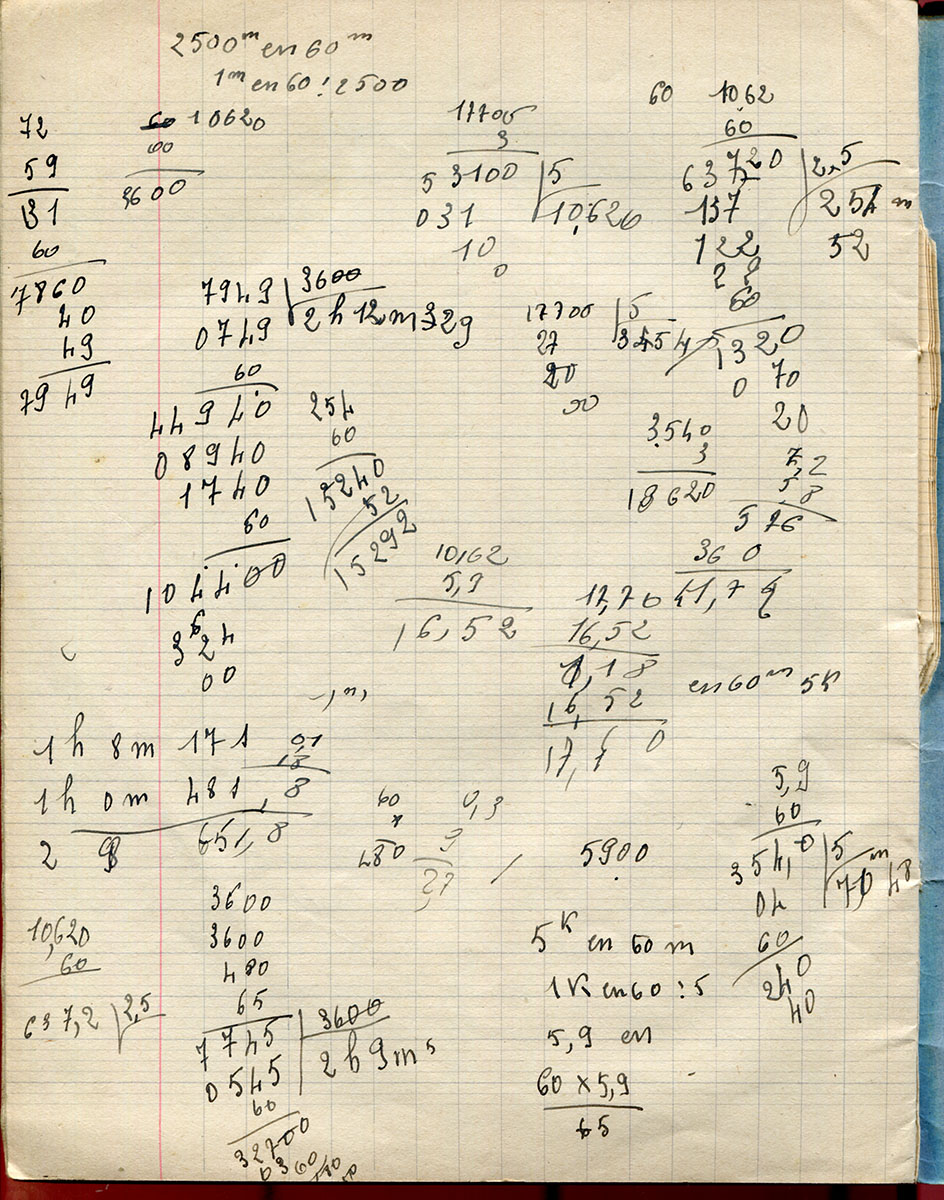 2500ᵐ en 60ᵐ
1ᵐ en 60 : 2500
72
59
131
60
7860
40
49
7949
60 10620
60
3600
17700
3
53100 | 5
031 10,620
10
0
60 10,62
60
63720 | 2,5
137 254 m
122 52
22
60
1320
0 70
20
7949 | 3600
0749 2 h 12 m 29
60
44940
08940
1740
60
104400
324
00
254
60
15240
52
15292
17700 | 5
27 354
20
00
3,540
3
18620
7,2
5,8
576
360
41,76
10,62
5,9
16,52
17,70
16,52
1,18
16,52
17,70
en 60ᵐ 5K
1 h 8m 171
1 h 0m 481,8
2 8 651,8
60
480
0,3
9
27
5900
5,9
60
354,0 | 5
04 70ᵐ 48
60
240
40
3600
3600
480
65
7745 | 3600
0545 2 h 9 m 5
60
32700
0360
10,620
60
637,2 | 2,5
5ᴷ en 60 m
1K en 60 : 5
5,9 en
60 x 5,9
65